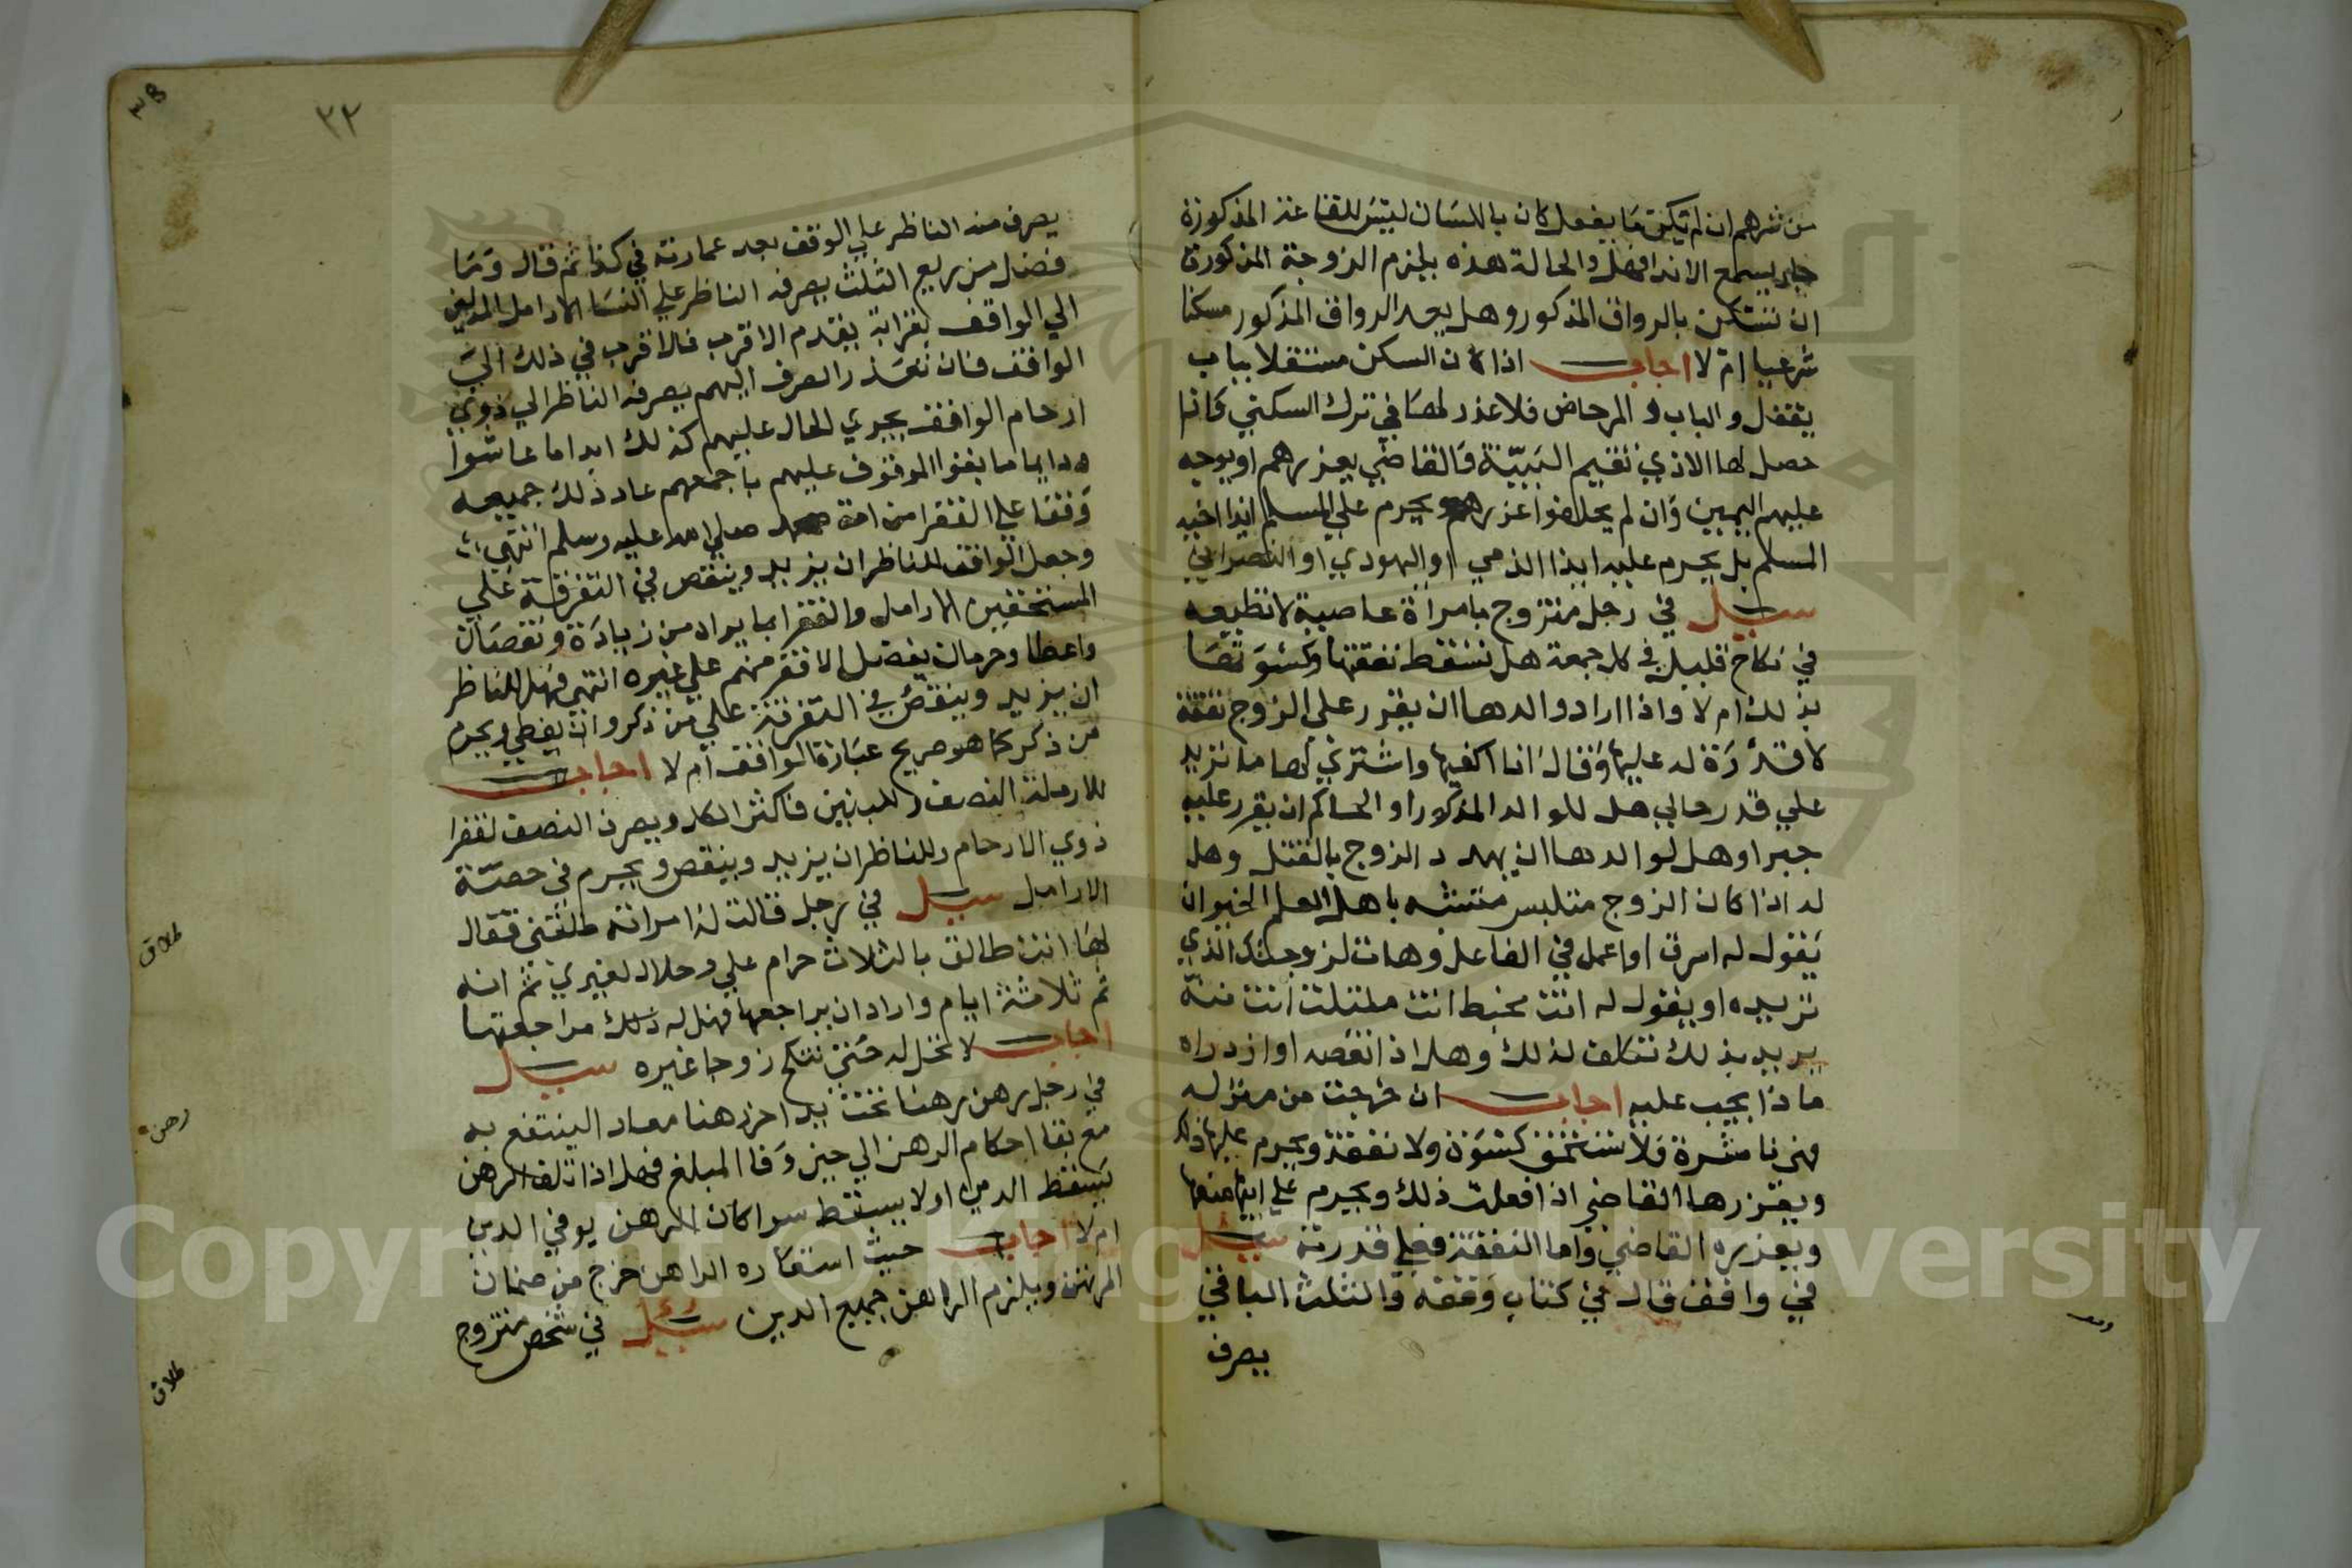 من شرهم ان لم يكن ما يفعل كان باللسان ليتس للقاعة المذكورة
جار يسمع الاذا فهل والحالة هذه يلزم الزوجة المذكورة
ان تسكن بالرواق المذكور وهل يعد الرواق المذكور مسكنا
شرعيا ام لا اجاب اذا كان السكن مستقلا بباب
يقفل والباب والمرحاض فلا عذر لها في ترك السكني فاذا
حصل لها الاذي تقيم البينة والقاضي يعزرهم او يوجه
عليهم اليمين وان لم يحلفوا عزرهم ويحرم علي المسلم ايذا اخيه
المسلم بل يحرم عليه ايذا الذمي او اليهودي او النصراني
سيل في رجل متزوج بامراة عاصية لا تطيعه
في نكاح قليل في كل جمعة هل تسقط نفقتها وكسوتها
بذلك ام لا واذا اراد والدها ان يقرر علي الزوج نفقة
لا قدرة له عليها وقال انا اكفيها واشتري لها ما تريد
علي قدر حالي هل للوالد المذكور او الحاكم ان يقرر عليه
جبرا وهل لوالدها ان يهدد الزوج بالقتل وهل
له اذا كان الزوج متلبس متشبه باهل العلم الخير ان
يقول له اسرق او اعمل في الفاعل وهات لزوجتك الذي
تريده او يقول له انت مخبط انت ملتلت انت
يريد بذلك نكلف لذلك وهل اذا نقصه او ازدراه
ماذا يجب عليه اجاب ان خرجت من منزله
فهي ناشزة ولا تستحق كسوة ولا نفقة ويحرم عليها ذلك
ويعزرها القاضي اذا فعلت ذلك ويحرم علي ابيها منعها
ويعزره القاضي واما النفقة فعلي قدرته سيل
في واقف قال في كتاب وقفه والثلث الباقي
يصرف
٣٢
يصرف منه الناظر علي الوقف بعد عمارته في كذا ثم قال وما
فضل من ريع الثلث يصرفه الناظر علي النسا الارامل المدلين
الي الواقف بقرابة يقدم الاقرب فالاقرب في ذلك الي
الواقف فان تعذر الصرف اليهم يصرفه الناظر الي ذوي
ارحام الواقف يجري الحال عليهم كذلك ابدا ما عاشوا
ودايما ما بقوا الموقوف عليهم باجمعهم عاد ذلك جميعه
وقفا علي الفقرا من امة محمد صلي الله عليه وسلم انتهي
وجعل الواقف للناظر ان يزيد وينقص في التفرقة علي
المستحقين الارامل والفقرا بما يراد من زيادة ونقصان
واعطا وحرمان يفضل الافقر منهم علي غيره انتهي فهل للناظر
ان يزيد وينقص في التفرقة علي من ذكر وان يعطي ويحرم
من ذكر كما هو صريح عبارة الواقف ام لا اجاب
للارملة النصف وللبنتين فاكثر الكل ويصرف النصف لفقرا
ذوي الارحام وللناظر ان يزيد وينقص ويحرم في حصة
الارامل سيل في رجل قالت له امراته طلقني فقال
لها انت طالق بالثلاث حرام علي وحلال لغيري ثم انه
تم ثلاثة ايام واراد ان يراجعها فهل له ذلك مراجعتها
اجاب لا تحل له حتي تنكح زوجا غيره سيل
في رجل رهن رهنا تحت يد اخر رهنا معاد الينتفع به
مع بقا احكام الرهن الي حين وفا المبلغ فهل اذا تلف الرهن
يسقط الدين اولا يسقط سوا كان الرهن يوفي الدين
ام لا اجاب حيث استعاره الراهن خرج من ضمان
المرتهن ويلزم الراهن جميع الدين سيل في شخص متزوج
طلاق
رهن
طلاق
Copyright © King Saud University